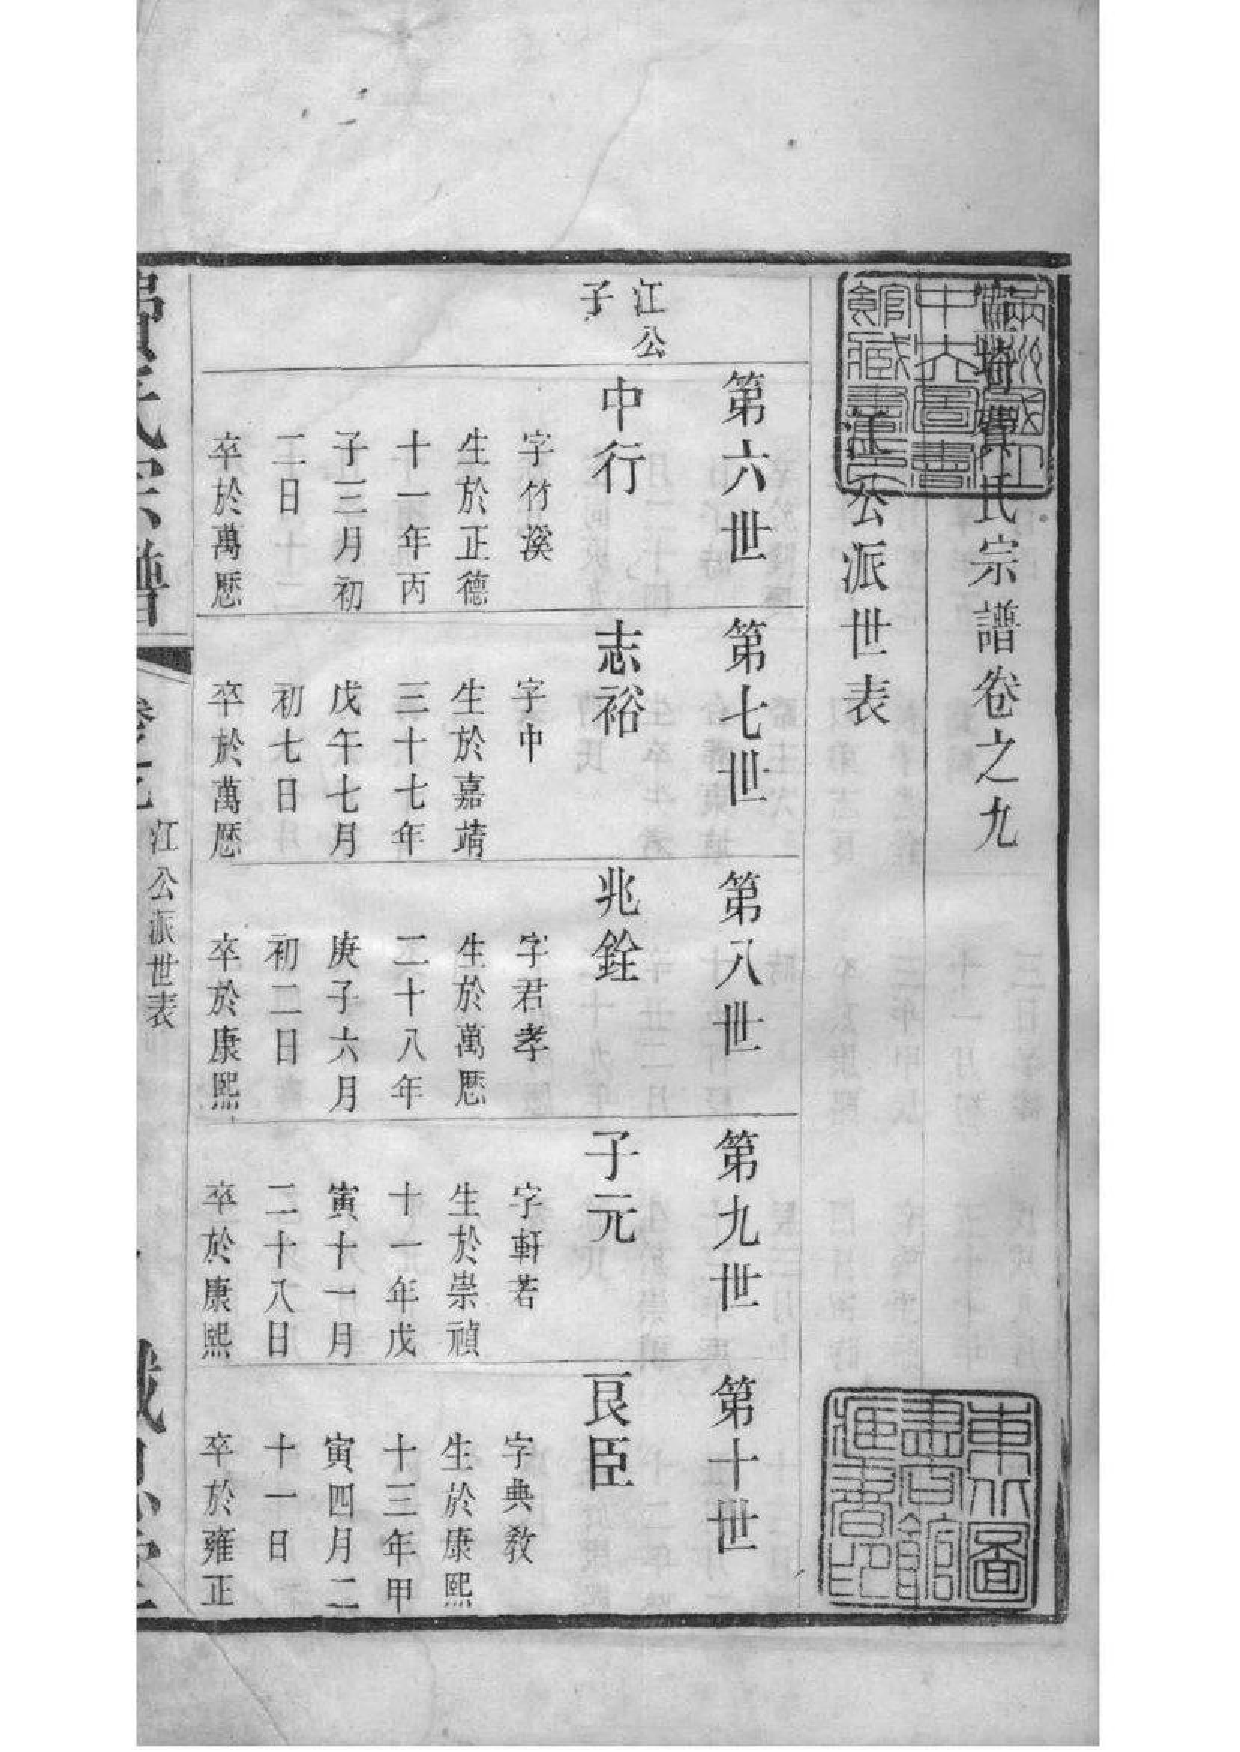 滿洲國立
中央圖書
館藏書印
費氏宗譜卷之九
江公派世表
東北圖
書館
藏書印
江公
子
第六世
中行
字竹溪
生於正德
十一年丙
子三月初
二日
卒於萬厯
第七世
志裕
字中
生於嘉靖
三十七年
戊午七月
初七日
卒於萬厯
第八世
兆銓
字君孝
生於萬厯
二十八年
庚子六月
初二日
卒於康熙
第九世
子元
字軒若
生於崇禎
十一年戊
寅十一月
二十八日
卒於康熙
第十世
艮臣
字典教
生於康熙
十三年甲
寅四月二
十一日
卒於雍正
費氏宗譜
卷之九
江公派世表